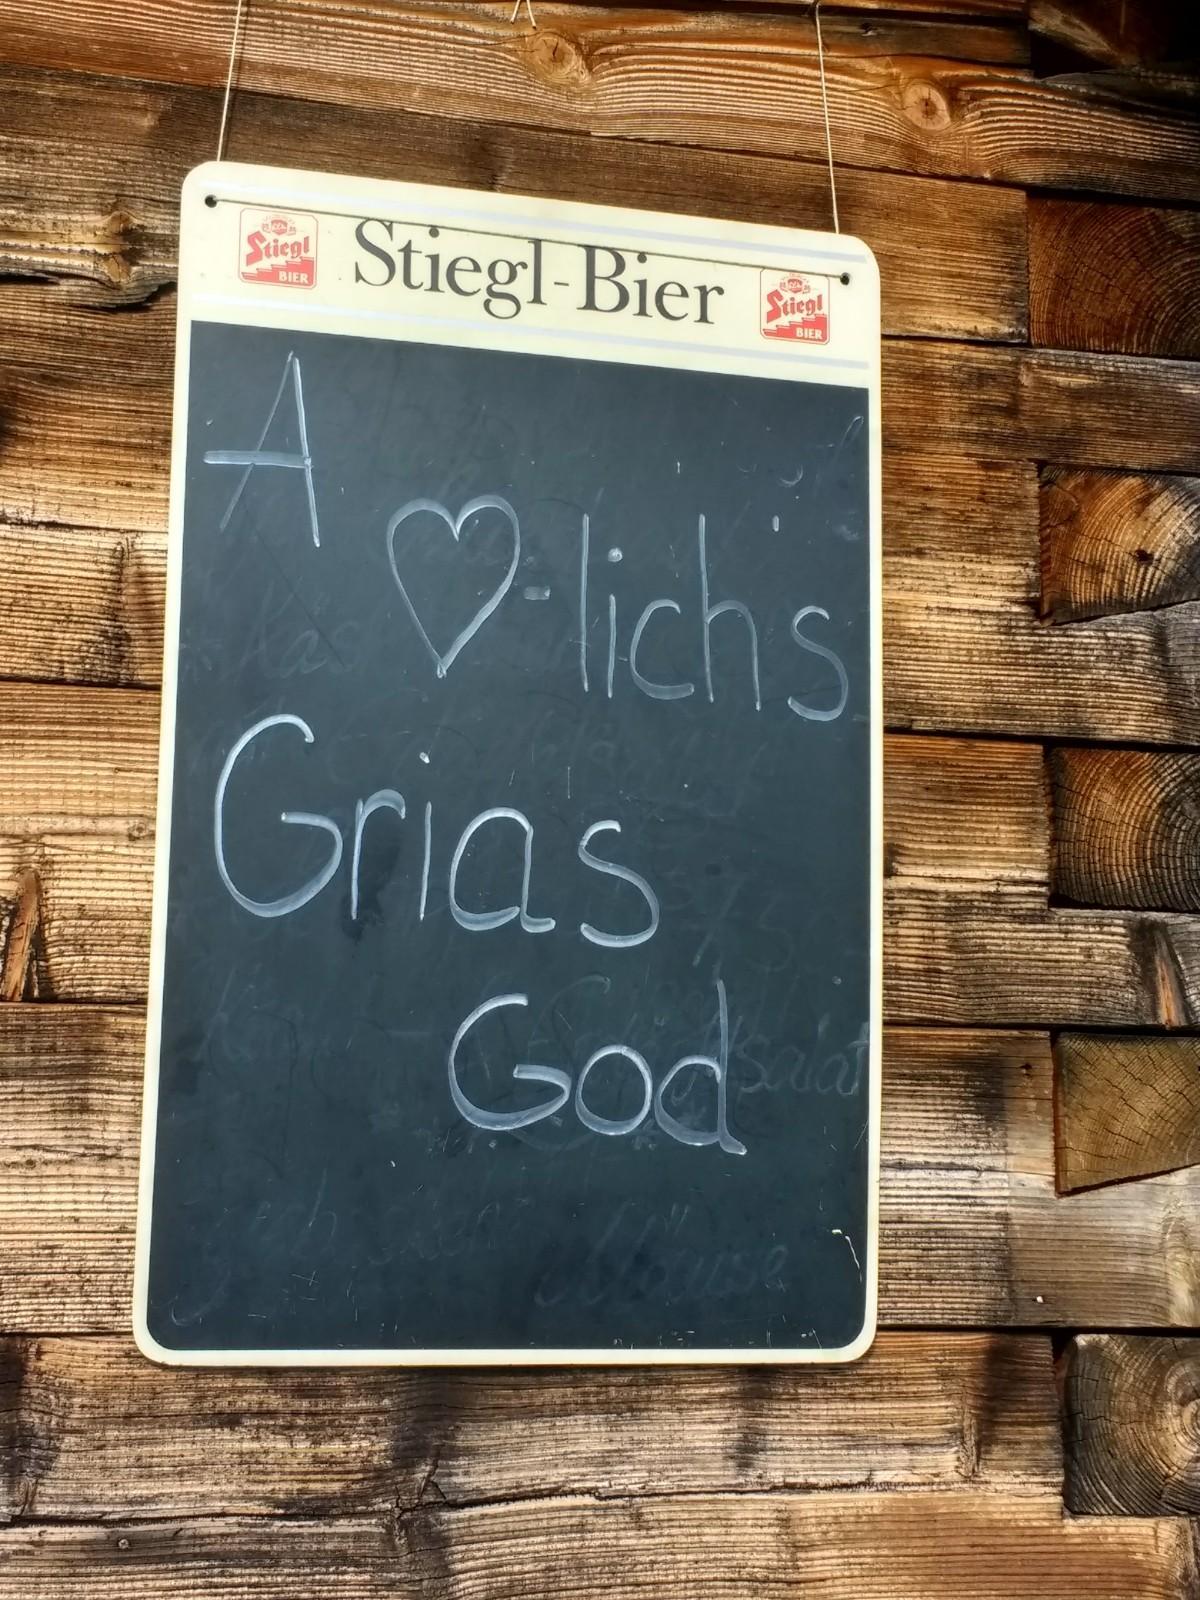 Stiegl BIER
Stiegl-Bier
Stiegl BIER
A
♡-lichs
Grias
God